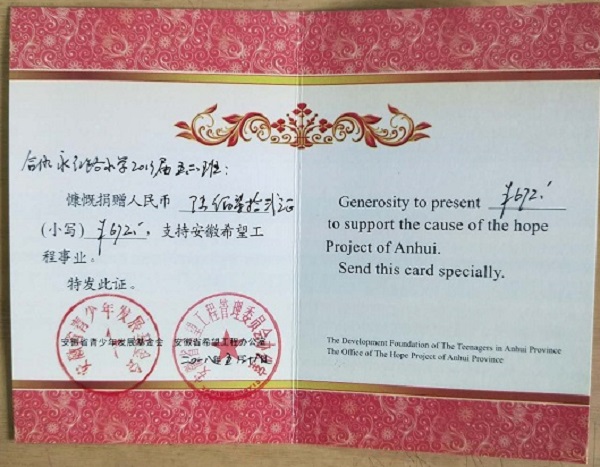 合肥永红路小学2019届五二班:
慷慨捐赠人民币 陆佰柒拾贰元
(小写) ¥672.- ,支持安徽希望工
程事业。
特发此证。
安徽省青少年发展基金会 安徽省希望工程办公室
二〇一八年五月
Generosity to present ¥672.-
to support the cause of the hope
Project of Anhui.
Send this card specially.
The Development Foundation of The Teenagers in Anhui Province
The Office of The Hope Project of Anhui Province